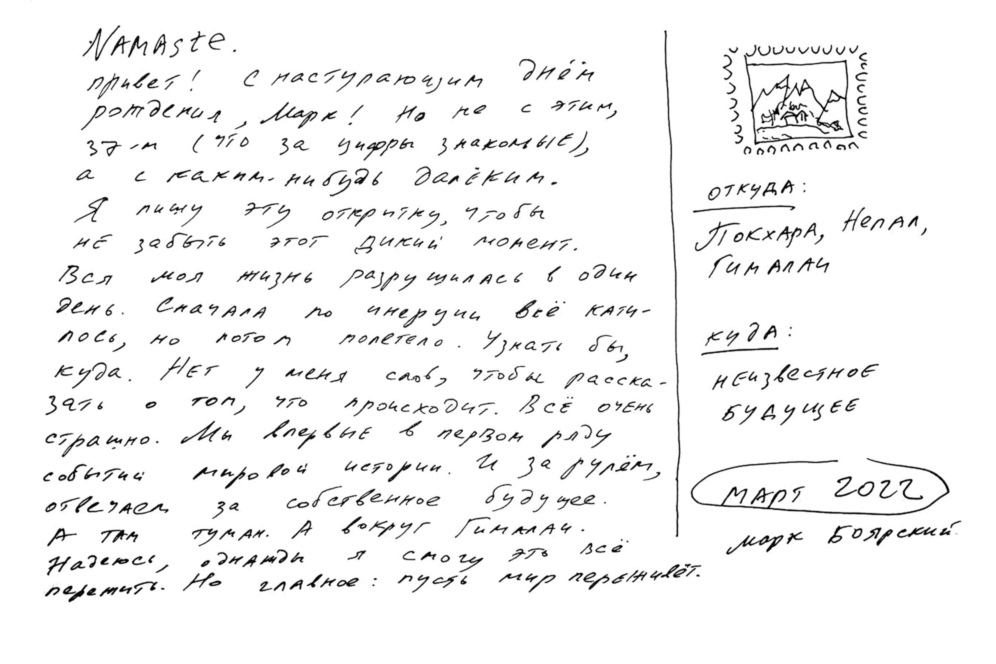 Namaste.
привет! С настурающим днём
рождения, Марк! Но не с этим,
37-м (что за цифры знакомые),
а с каким-нибудь далёким.
Я пишу эту открытку, чтобы
не забыть этот дикий момент.
Вся моя жизнь разрушилась в один
день. Сначала по инерции всё кати-
лось, но потом полетело. Узнать бы,
куда. Нет у меня слов, чтобы расска-
зать о том, что происходит. Всё очень
страшно. Мы впервые в первом ряду
событий мировой истории. И за рулём,
отвечаем за собственное будущее.
А там туман. А вокруг Гималаи.
Надеюсь, однажды я смогу это всё
пережить. Но главное: пусть мир переживёт.
откуда:
Покхара, Непал,
Гималаи
куда:
неизвестное
будущее
март 2022
Марк Боярский